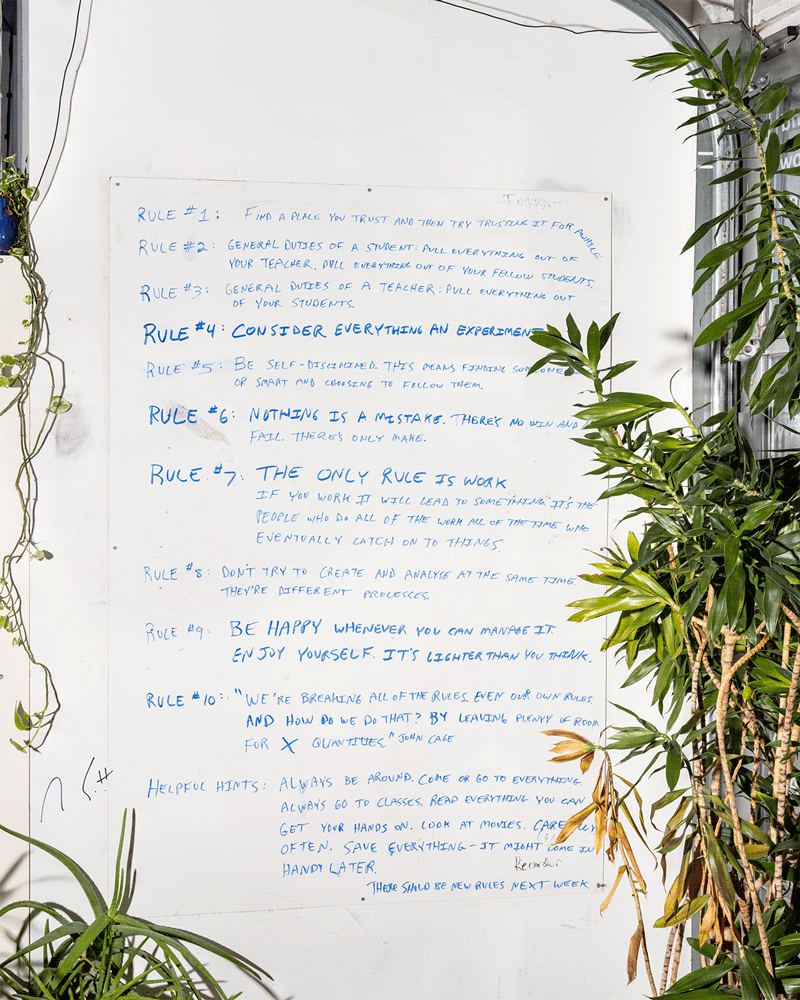 RULE #1: FIND A PLACE YOU TRUST AND THEN TRY TRUSTING IT FOR AWHILE
RULE #2: GENERAL DUTIES OF A STUDENT: PULL EVERYTHING OUT OF
YOUR TEACHER. PULL EVERYTHING OUT OF YOUR FELLOW STUDENTS.
RULE #3: GENERAL DUTIES OF A TEACHER: PULL EVERYTHING OUT
OF YOUR STUDENTS.
RULE #4: CONSIDER EVERYTHING AN EXPERIMENT
RULE #5: BE SELF-DISCIPLINED. THIS MEANS FINDING SOMEONE
OR SMART AND CHOOSING TO FOLLOW THEM.
RULE #6: NOTHING IS A MISTAKE. THERE'S NO WIN AND
FAIL. THERE'S ONLY MAKE.
RULE #7: THE ONLY RULE IS WORK
IF YOU WORK IT WILL LEAD TO SOMETHING. IT'S THE
PEOPLE WHO DO ALL OF THE WORK ALL OF THE TIME WHO
EVENTUALLY CATCH ON TO THINGS.
RULE #8: DON'T TRY TO CREATE AND ANALYSE AT THE SAME TIME.
THEY'RE DIFFERENT PROCESSES.
RULE #9: BE HAPPY WHENEVER YOU CAN MANAGE IT.
ENJOY YOURSELF. IT'S LIGHTER THAN YOU THINK.
RULE #10: "WE'RE BREAKING ALL OF THE RULES. EVEN OUR OWN RULES.
AND HOW DO WE DO THAT? BY LEAVING PLENTY OF ROOM
FOR X QUANTITIES." JOHN CAGE
HELPFUL HINTS: ALWAYS BE AROUND. COME OR GO TO EVERYTHING.
ALWAYS GO TO CLASSES. READ EVERYTHING YOU CAN
GET YOUR HANDS ON. LOOK AT MOVIES. CAREFULLY
OFTEN. SAVE EVERYTHING - IT MIGHT COME IN
HANDY LATER.
THERE SHOULD BE NEW RULES NEXT WEEK.